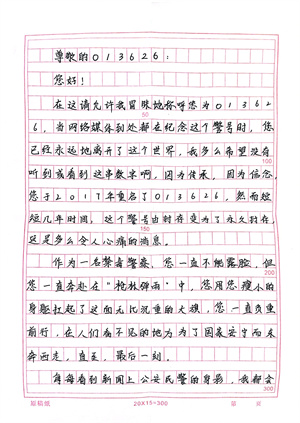 尊敬的013626：
您好！
在这请允许我冒昧地称呼您为01362
6，当网络媒体到处都在纪念这个警号时，您
已经永远地离开了这个世界，我多么希望没有
听到或看到这串数字啊，因为传承，因为信念，
您于2017年重启了013626，然而短
短几年时间，这个警号由封存变为了永久封存，
这是多么令人心痛的消息。
作为一名禁毒警察，您一直不能露脸，但
您一直奔赴在“枪林弹雨”中，您用您瘦小的
身躯扛起了这面无比沉重的大旗，您一直负重
前行，在人们看不见的地方为了国家安宁而来
奔西走，直至，最后一刻。
每每看到新闻上公安民警的身影，我都会
50
100
150
200
300
原稿纸 20X15=300 第 页